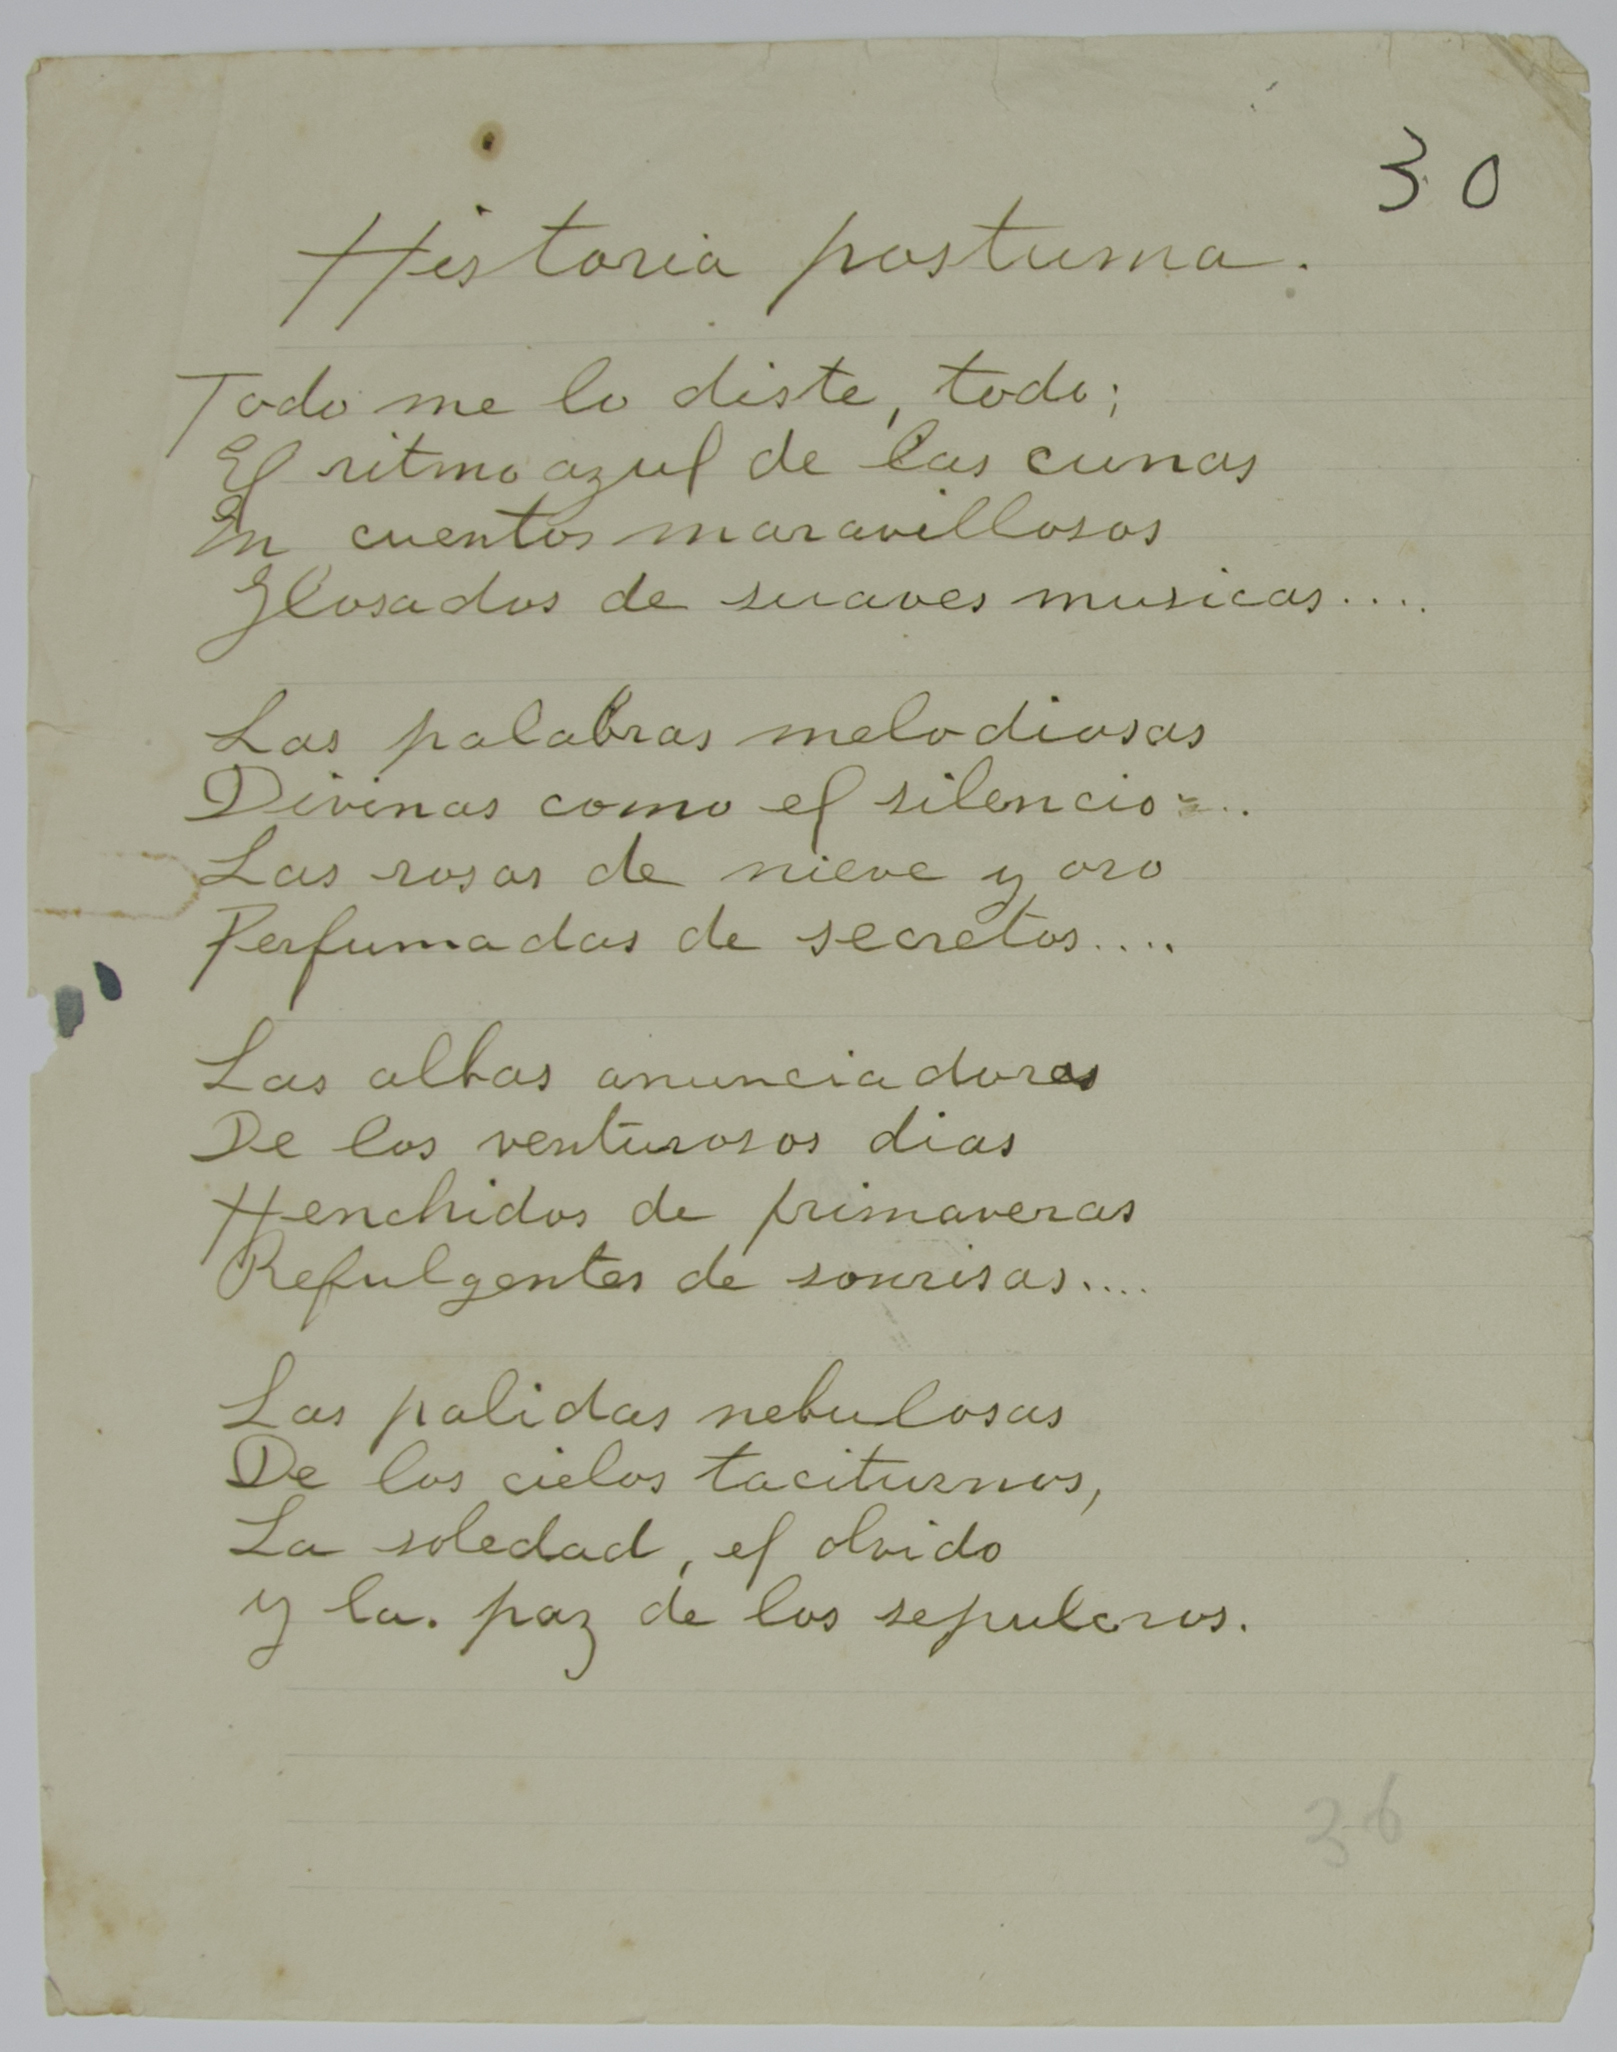 30
Historia postuma.
Todo me lo diste, todo;
El ritmo azul de las cunas
En cuentos maravillosos
Glosados de suaves musicas....
Las palabras melodiosas
Divinas como el silencio...
Las rosas de nieve y oro
Perfumadas de secretos....
Las albas anunciadoras
De los venturosos dias
Henchidos de primaveras
Refulgentes de sonrisas....
Las palidas nebulosas
De los cielos taciturnos,
La soledad, el olvido
y la. paz de los sepulcros.
36